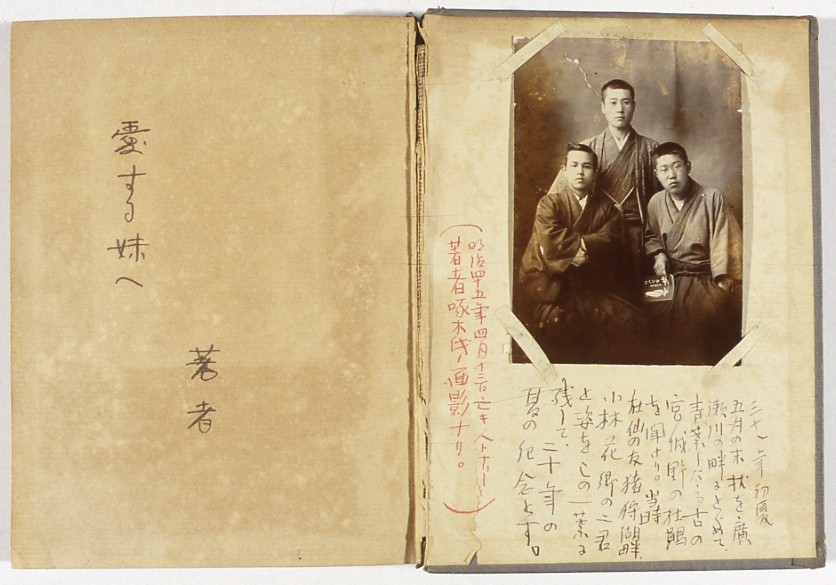 愛する妹へ
著者
(明治四十五年四月十三日亡キ人トナリし
著者啄木氏ノ面影ナリ。)
三十八年初夏
五月の末杖を廣
瀬川の畔にとどめて
青葉したゝる古の
宮城野の杜鵑
を聞けり。当時
杜仙の友猪狩湖畔、
小林花郷の二君
と姿をこの一葉に
残して、二十年の
夏の記念とす。